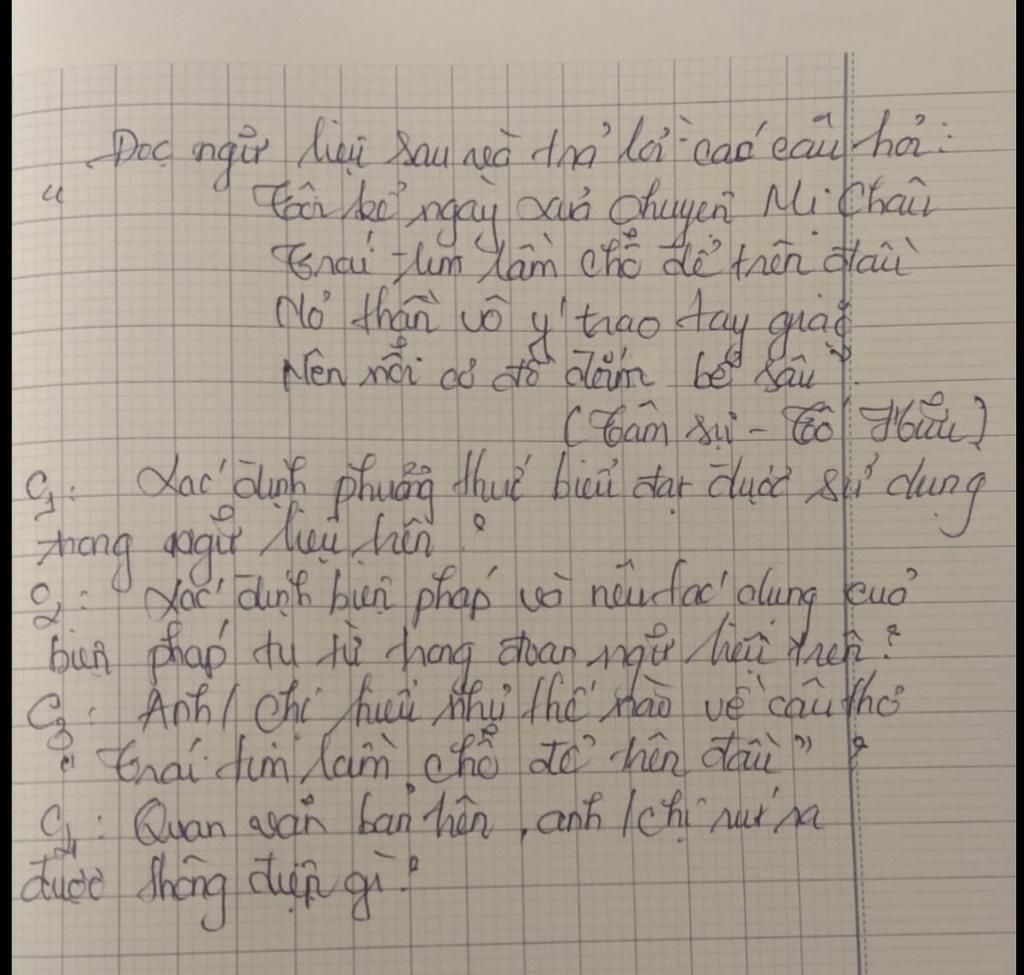 Đọc ngữ liệu sau và trả lời các câu hỏi:
" Tôi kể ngày xưa chuyện Mị Châu
Trái tim lầm chỗ để trên đầu
Nỏ thần vô ý trao tay giặc
Nên nỗi cơ đồ đắm bể sâu"
(Tâm sự - Tố Hữu)
C1: Xác định phương thức biểu đạt được sử dụng
trong ngữ liệu trên?
C2: Xác định biện pháp và nêu tác dụng của
biện pháp tu từ trong đoạn ngữ liệu trên?
C3: Anh/chị hiểu như thế nào về câu thơ
"Trái tim lầm chỗ để trên đầu"?
C4: Quan văn bản trên, anh/chị rút ra
được thông điệp gì?